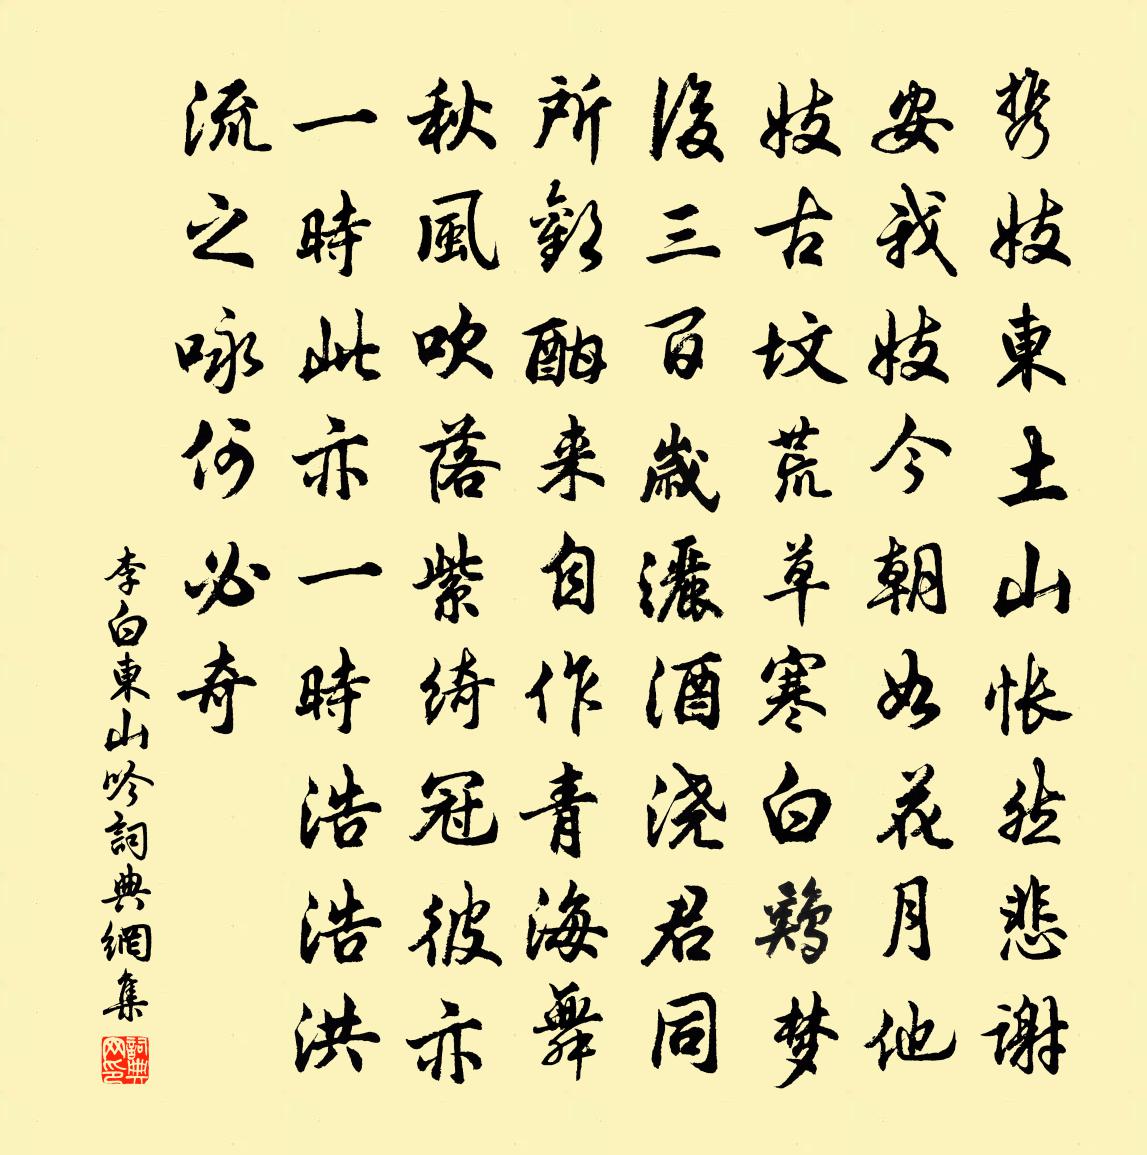 携妓東土山怅然悲谢
安我妓今朝如花月他
妓古坟荒草寒白鷄梦
後三百歲灑酒浇君同
所歡酣来自作青海舞
秋風吹落紫绮冠彼亦
一時此亦一時浩浩洪
流之咏何必奇
李白東山吟詞典網集
詞典网印